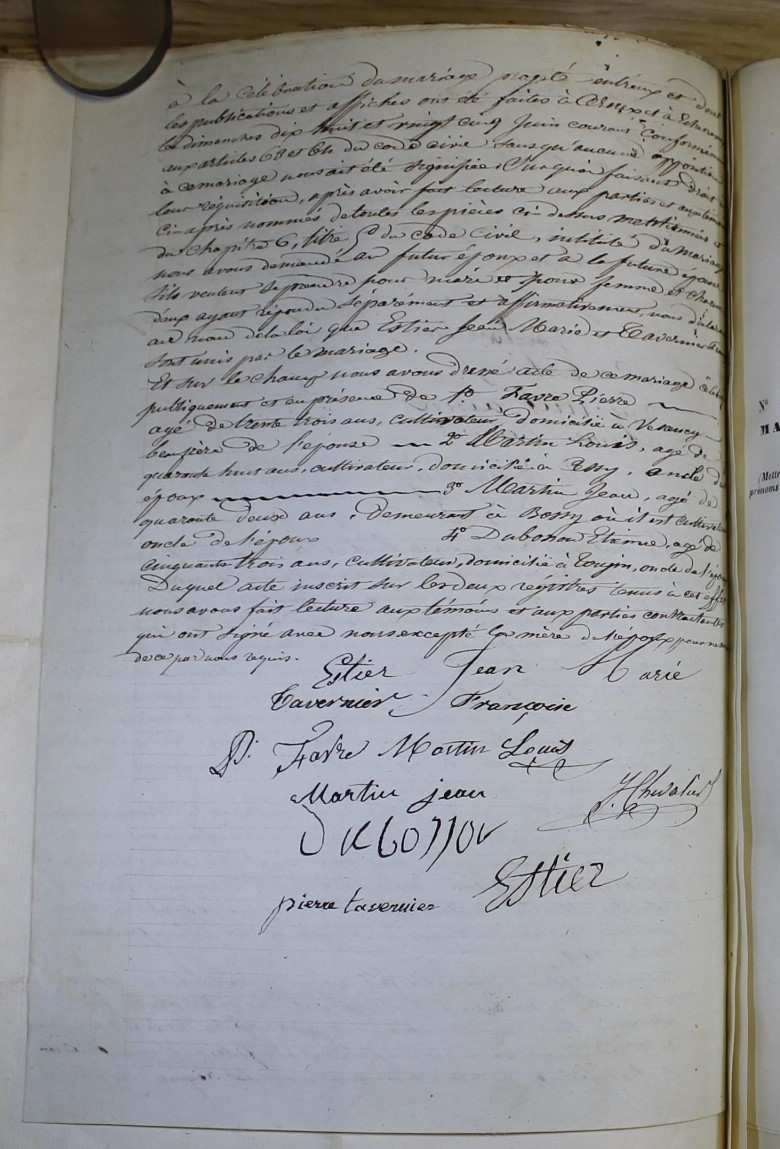 à la célébration du mariage projeté entreux et dont
les publications et affiches ont été faites à Cessy et à
les dimanches dix huit et vingt cinq Juin courant conformément
aux articles 63 et 64 du code civil sans qu'aucune opposition
à ce mariage nous ait été signifiée, Surquoi faisant droit à
leur réquisition, après avoir fait lecture aux parties et aux témoins
Ci-après nommés de toutes les pièces ci-dessus mentionnées et
du chapitre 6, titre 5e du code Civil, intitulé du mariage
nous avons demandé au futur époux et à la future épouse
s'ils veulent se prendre pour mari et pour femme et chacun
d'eux ayant répondu séparément et affirmativement, nous déclarons
au nom de la loi que Estier Jean Marie et Tavernier
sont unis par le mariage.
Et sur le champ nous avons dressé acte de ce mariage célébré
publiquement et en présence de 1o Favre Pierre
agé de trente trois ans, cultivateur domicilié à Vesancy
beaupère de l'épouse 2o Martin Louis, agé de
quarante huit ans, cultivateur, domicilié à , oncle de
époux 3o Martin Jean, agé de
quarante deux ans, demeurant à Bossy où il est cultivateur
oncle de l'époux 4o Dubonne Etienne, agé de
cinquante trois ans, cultivateur, domicilié à Tougin, oncle de l'époux
Duquel acte inscrit sur les deux régistres tenus à cet effet
nous avons fait lecture aux témoins et aux parties contractantes
qui ont signé avec nous excepté la mère de l'époux pour
de ce par nous requis.
Estier Jean Marie
Tavernier Françoise
P. Favre Martin Louis
Martin jean
J Chevalier
pierre tavernier
Estier
N°
MA
(Mettre
prénoms